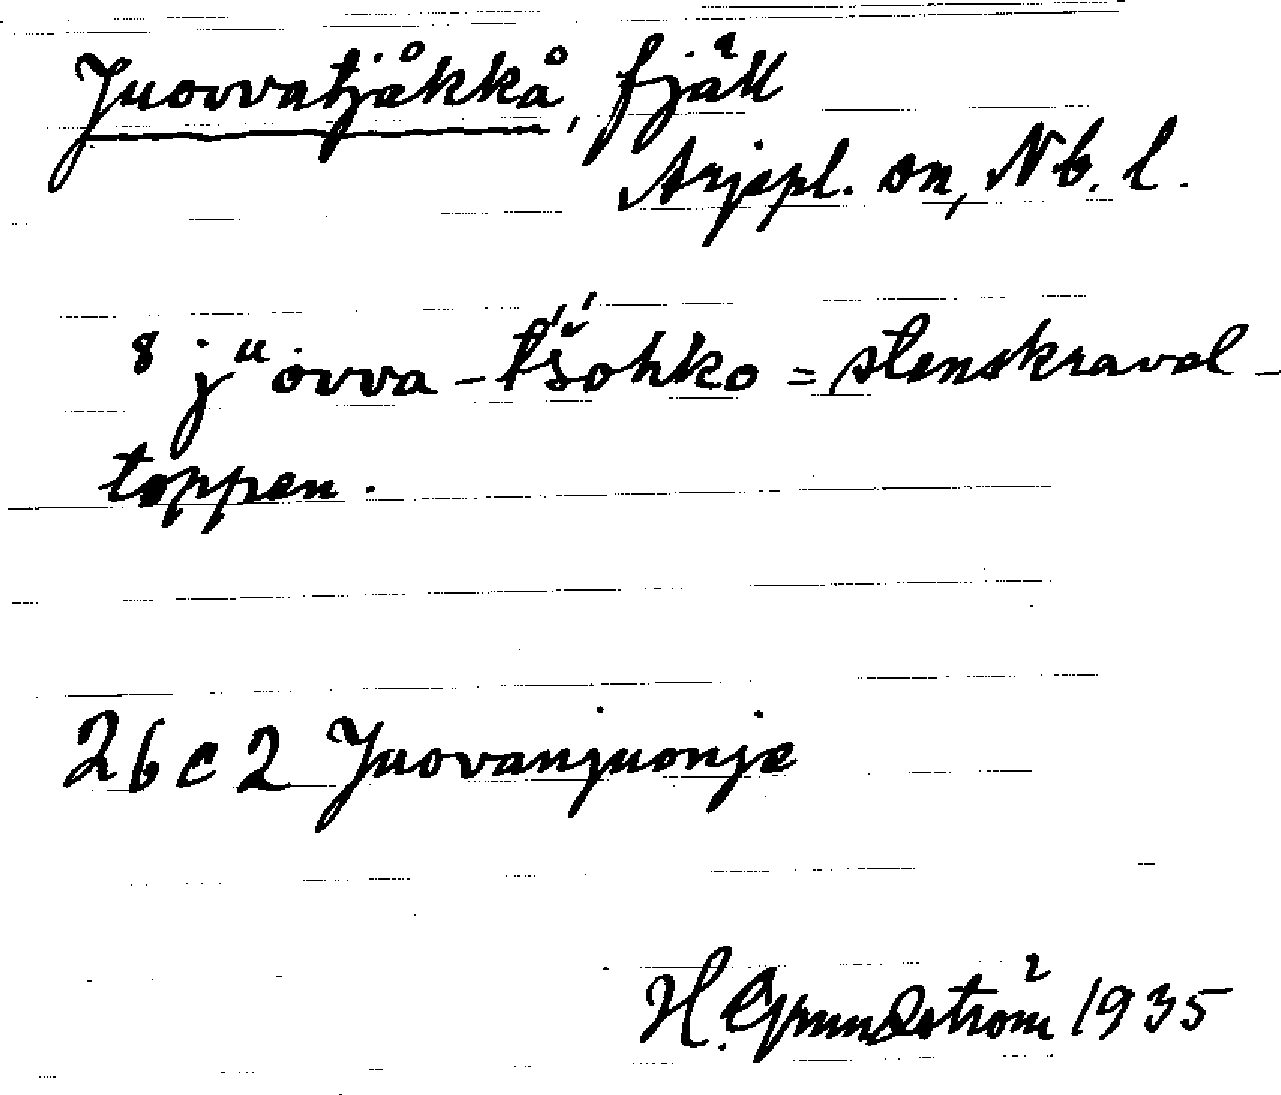 Juovvatjåkkå, fjäll
Arjepl. sn, Nb. l.
8 jᵘovva-tš́ohko = stenskravel-
toppen.
26 c 2 Juovanjuonje
H. Grundström 1935